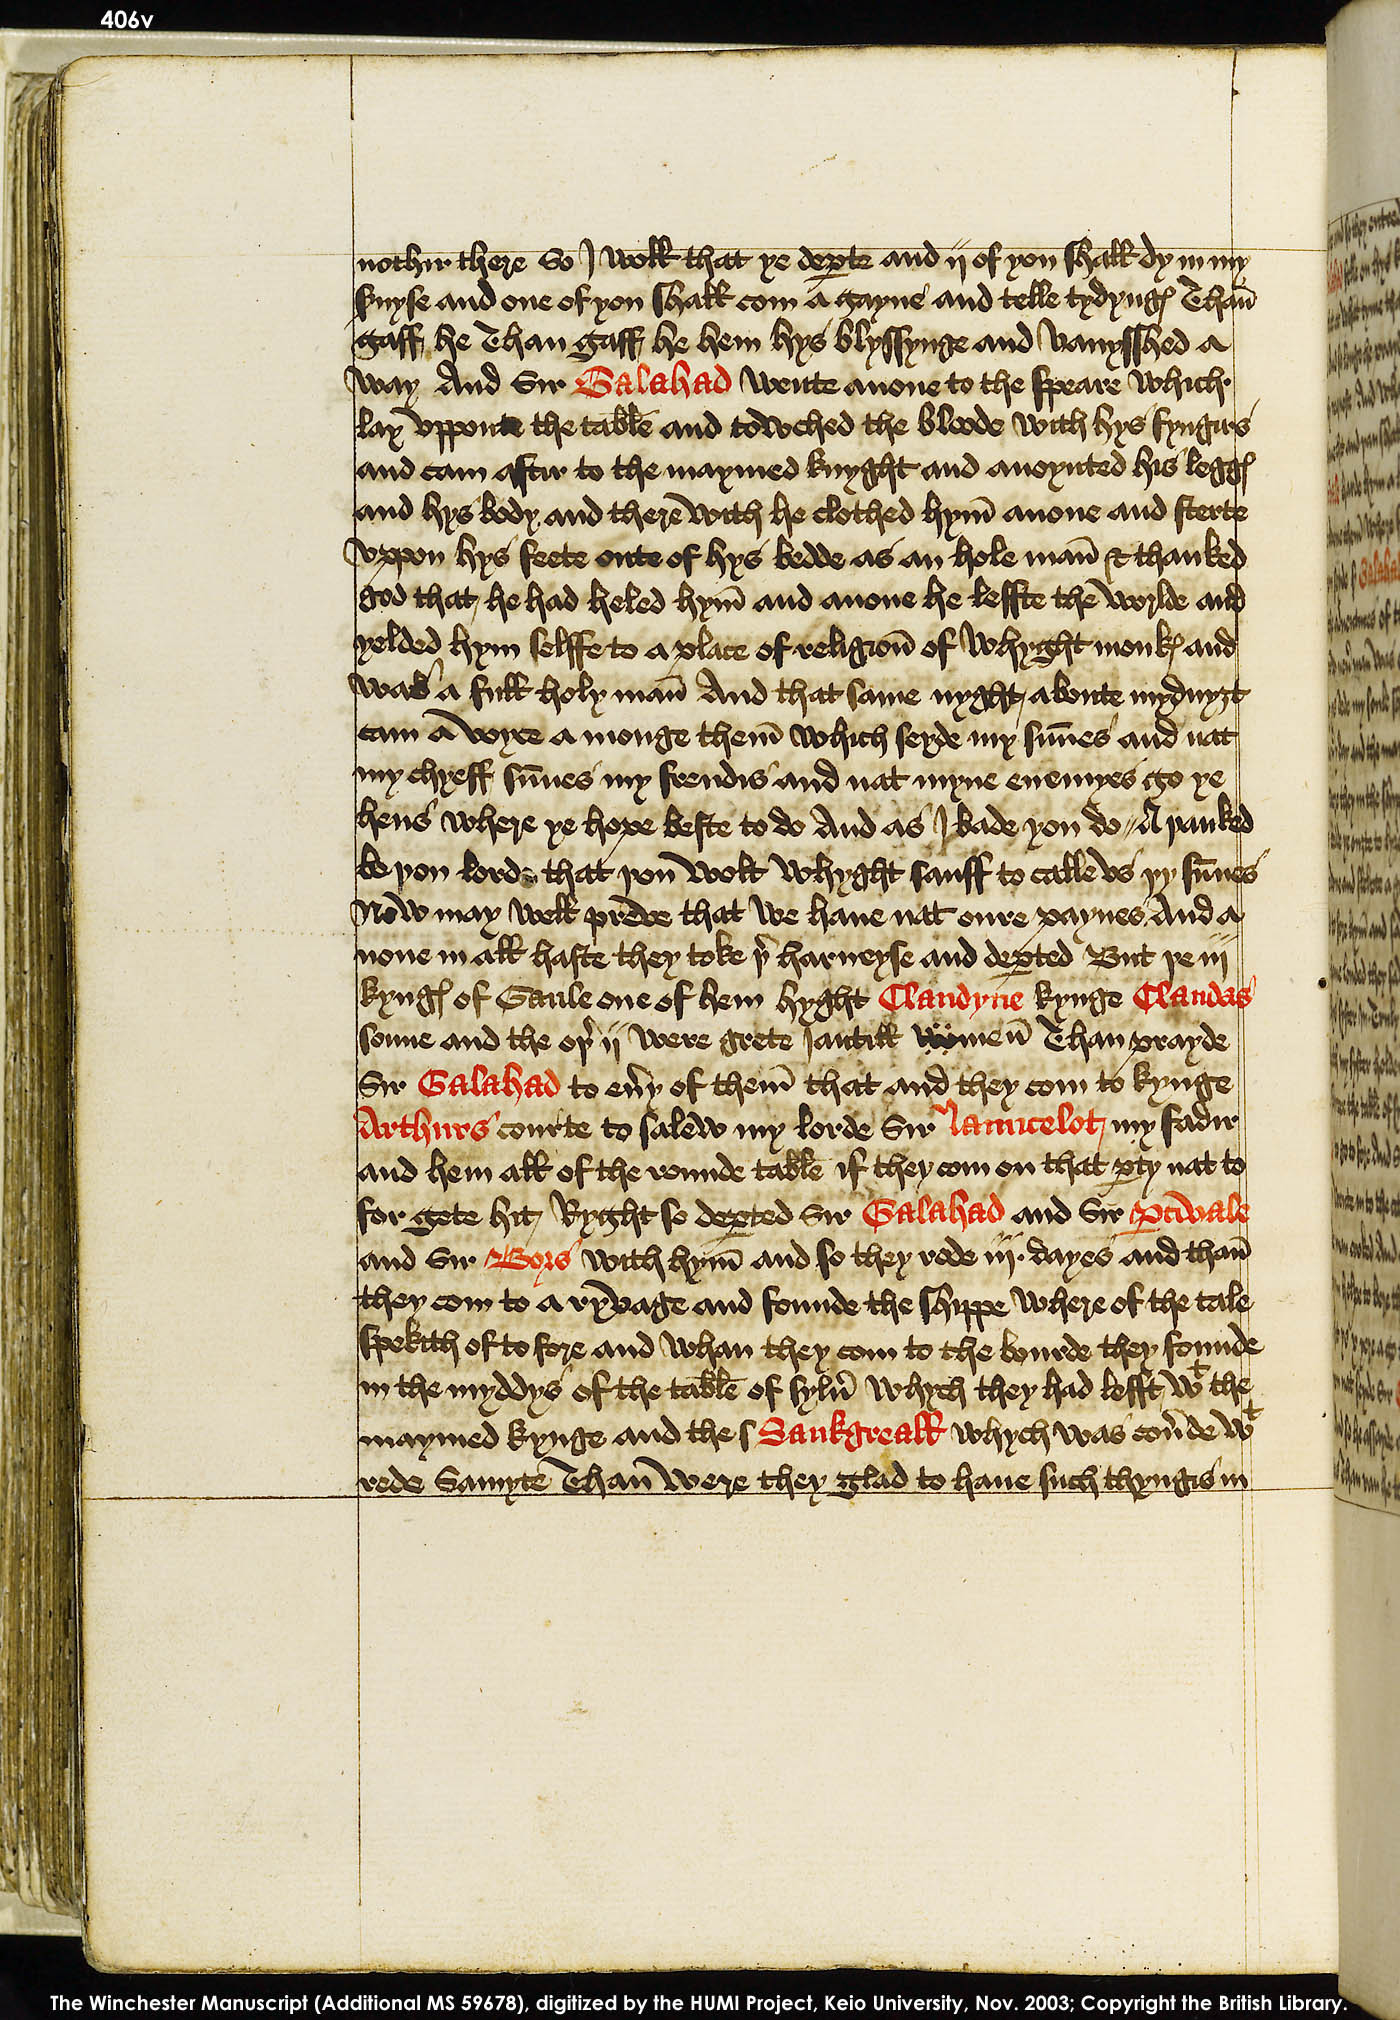 406v
nothir there So I woll that ye dep̱te and ij of you shall dy in my
s̱uyse and one of you shall com a gayne and telle tydyngꝭ Than̄
gaff he Than gaff he hem hys blyssynge and Vanysshed a
way And Sir Galahad wente anone to the speare which
lay vppon the table and towched the bloode with hys fyngirs
and cam aftir to the maymed knyght and anoynted his leggꝭ
and hys body and there with he clothed hym̄ anone and sterte
vppon hys feete oute of hys bedde as an hole man̄ & thanked
god that he had heled hym̄ and anone he leffte the worlde and
yelded hym selffe to a place of religion̄ of whyght monkꝭ and
was a full holy man̄ And that same nyght aboute mydnyȝt
cam a voyce a monge them̄ which seyde my sūnes and nat
my chyeff sūnes my frendis and nat myne enemyes go ye
hens where ye hope beste to do And as I bade you do // A þanked
be þou lorde that þou wolt whyght sauff to calle vs þy sūnes
Now may well preve that we haue nat oure paynes And a
none in all haste they toke þr harneyse and dep̱ted But þe iij
kyngꝭ of Gaule one of hem hyght Claudyne kynge Claudas
sonne and the oþr ij were grete Iantill men̄ Than prayde
Sir Galahad to eūy of them̄ that and they com to kynge
Arthurs courte to salew my lorde Sir Launcelot my fadir
and hem all of the rounde table if they com on that p̱ty nat to
for gete hit Ryght so dep̱ted Sir Galahad and Sir P̱civale
and Sir Bors with hym̄ and so they rode iij dayes and than̄
they com to a ryvage and founde the shippe where of the tale
spekith of to fore and whan they com to the bourde they founde
in the myddys of the table of sylū whych they had lefft wt the
maymed kynge and the s Sankgreall whych was coūde wt
rede Samyte Than were they glad to haue such thyngis in
The Winchester Manuscript (Additional MS 59678), digitized by the HUMI Project, Keio University, Nov. 2003; Copyright the British Library.